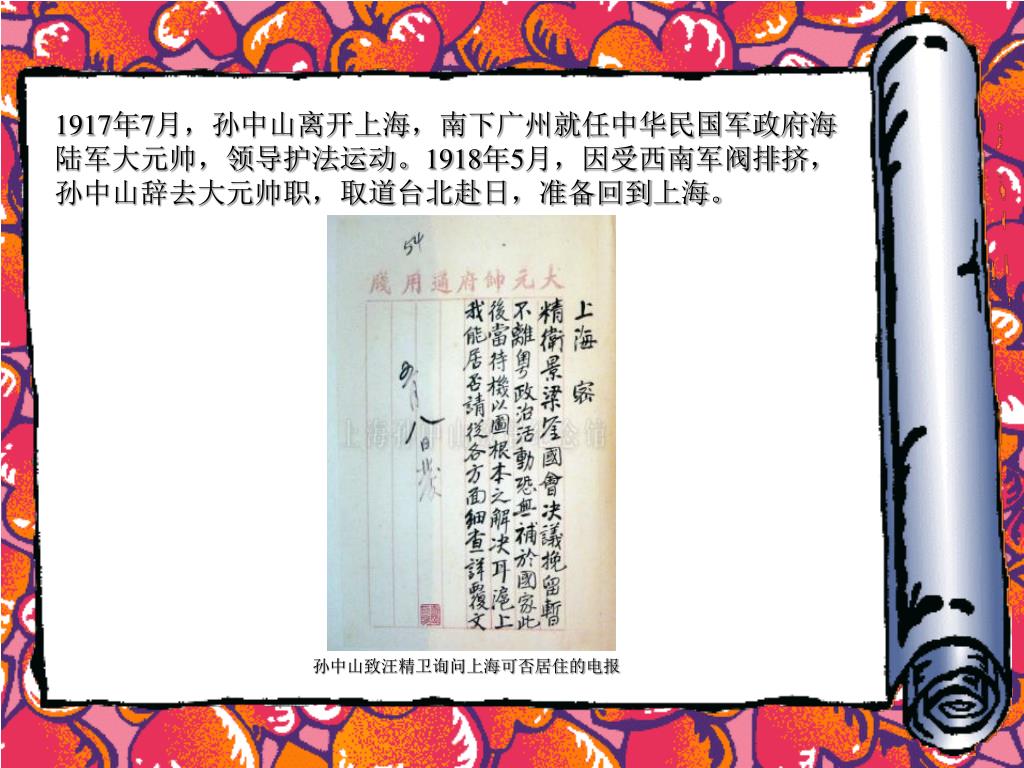 1917年7月，孙中山离开上海，南下广州就任中华民国军政府海
陆军大元帅，领导护法运动。1918年5月，因受西南军阀排挤，
孙中山辞去大元帅职，取道台北赴日，准备回到上海。
54
大元帥府通用牋
上海 密
精衛景梁鉴國會决議挽留暫
不離粵政治活動恐無補於國家此
後當待機以圖根本之解决耳滬上
我能居否請從各方面細查詳覆文
月八日發
孙中山致汪精卫询问上海可否居住的电报